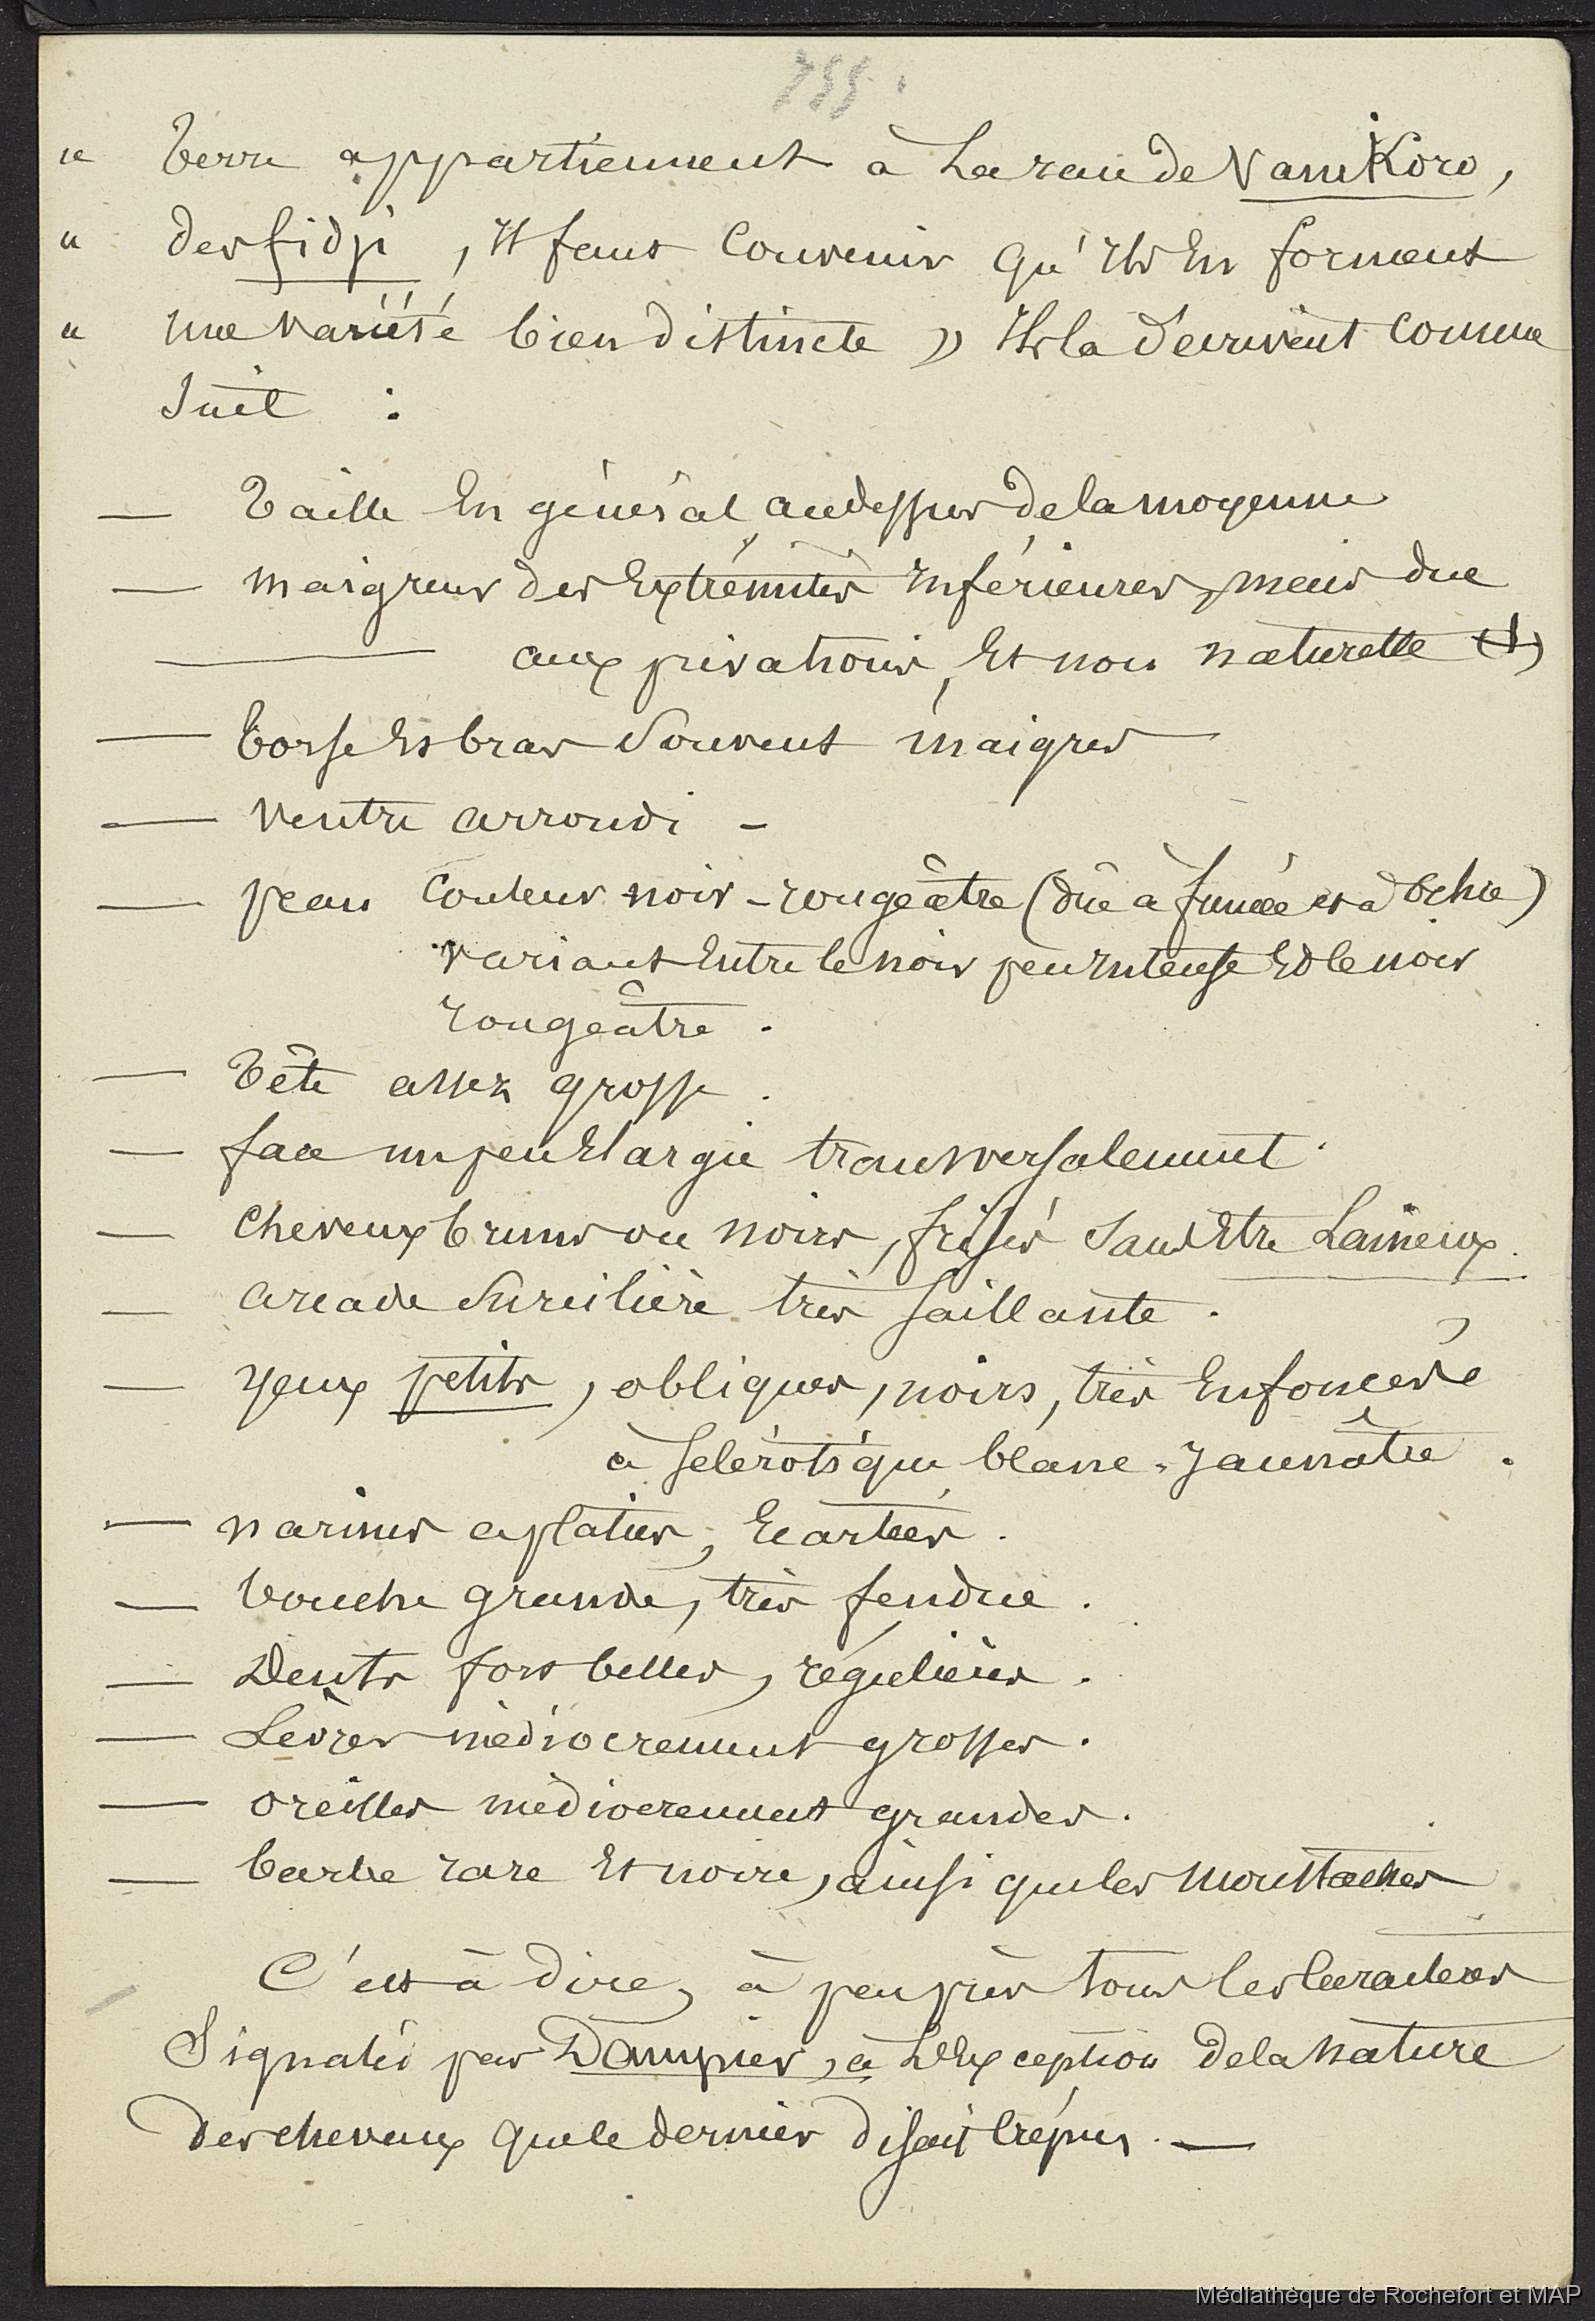 755.
" Terre appartiennent à la race de Vanikoro,
" des fidji, il faut convenir qu'ils en forment
" une variété bien distincte » Ils la décrivent comme
suit :
— Taille en général au dessus de la moyenne
— maigreur des extrémités inférieures, mais due
— aux privations, et non naturelle
— torse et bras souvent maigres
— ventre arrondi -
— peau couleur noir-rougeâtre (dûe à fumée et à ochre)
variant entre le noir peu intense et le noir
rougeâtre.
— Tête assez grosse.
— face un peu élargie transversalement.
— cheveux bruns ou noirs, frisés sans être laineux.
— arcade surcilière très saillante.
— yeux petits, obliques, noirs, très enfoncés
à sclérotique blanc-jaunâtre.
— narines aplaties, écartées.
— bouche grande, très fendue.
— Dents fort belles, régulières.
— Lèvres médiocrement grosses.
— oreilles médiocrement grandes.
— barbe rare et noire, ainsi que les moustaches
C'est à dire, à peu près tous les caractères
signalés par Dampier, à l'exception de la nature
des cheveux que le dernier disait crépus. —
Médiathèque de Rochefort et MAP